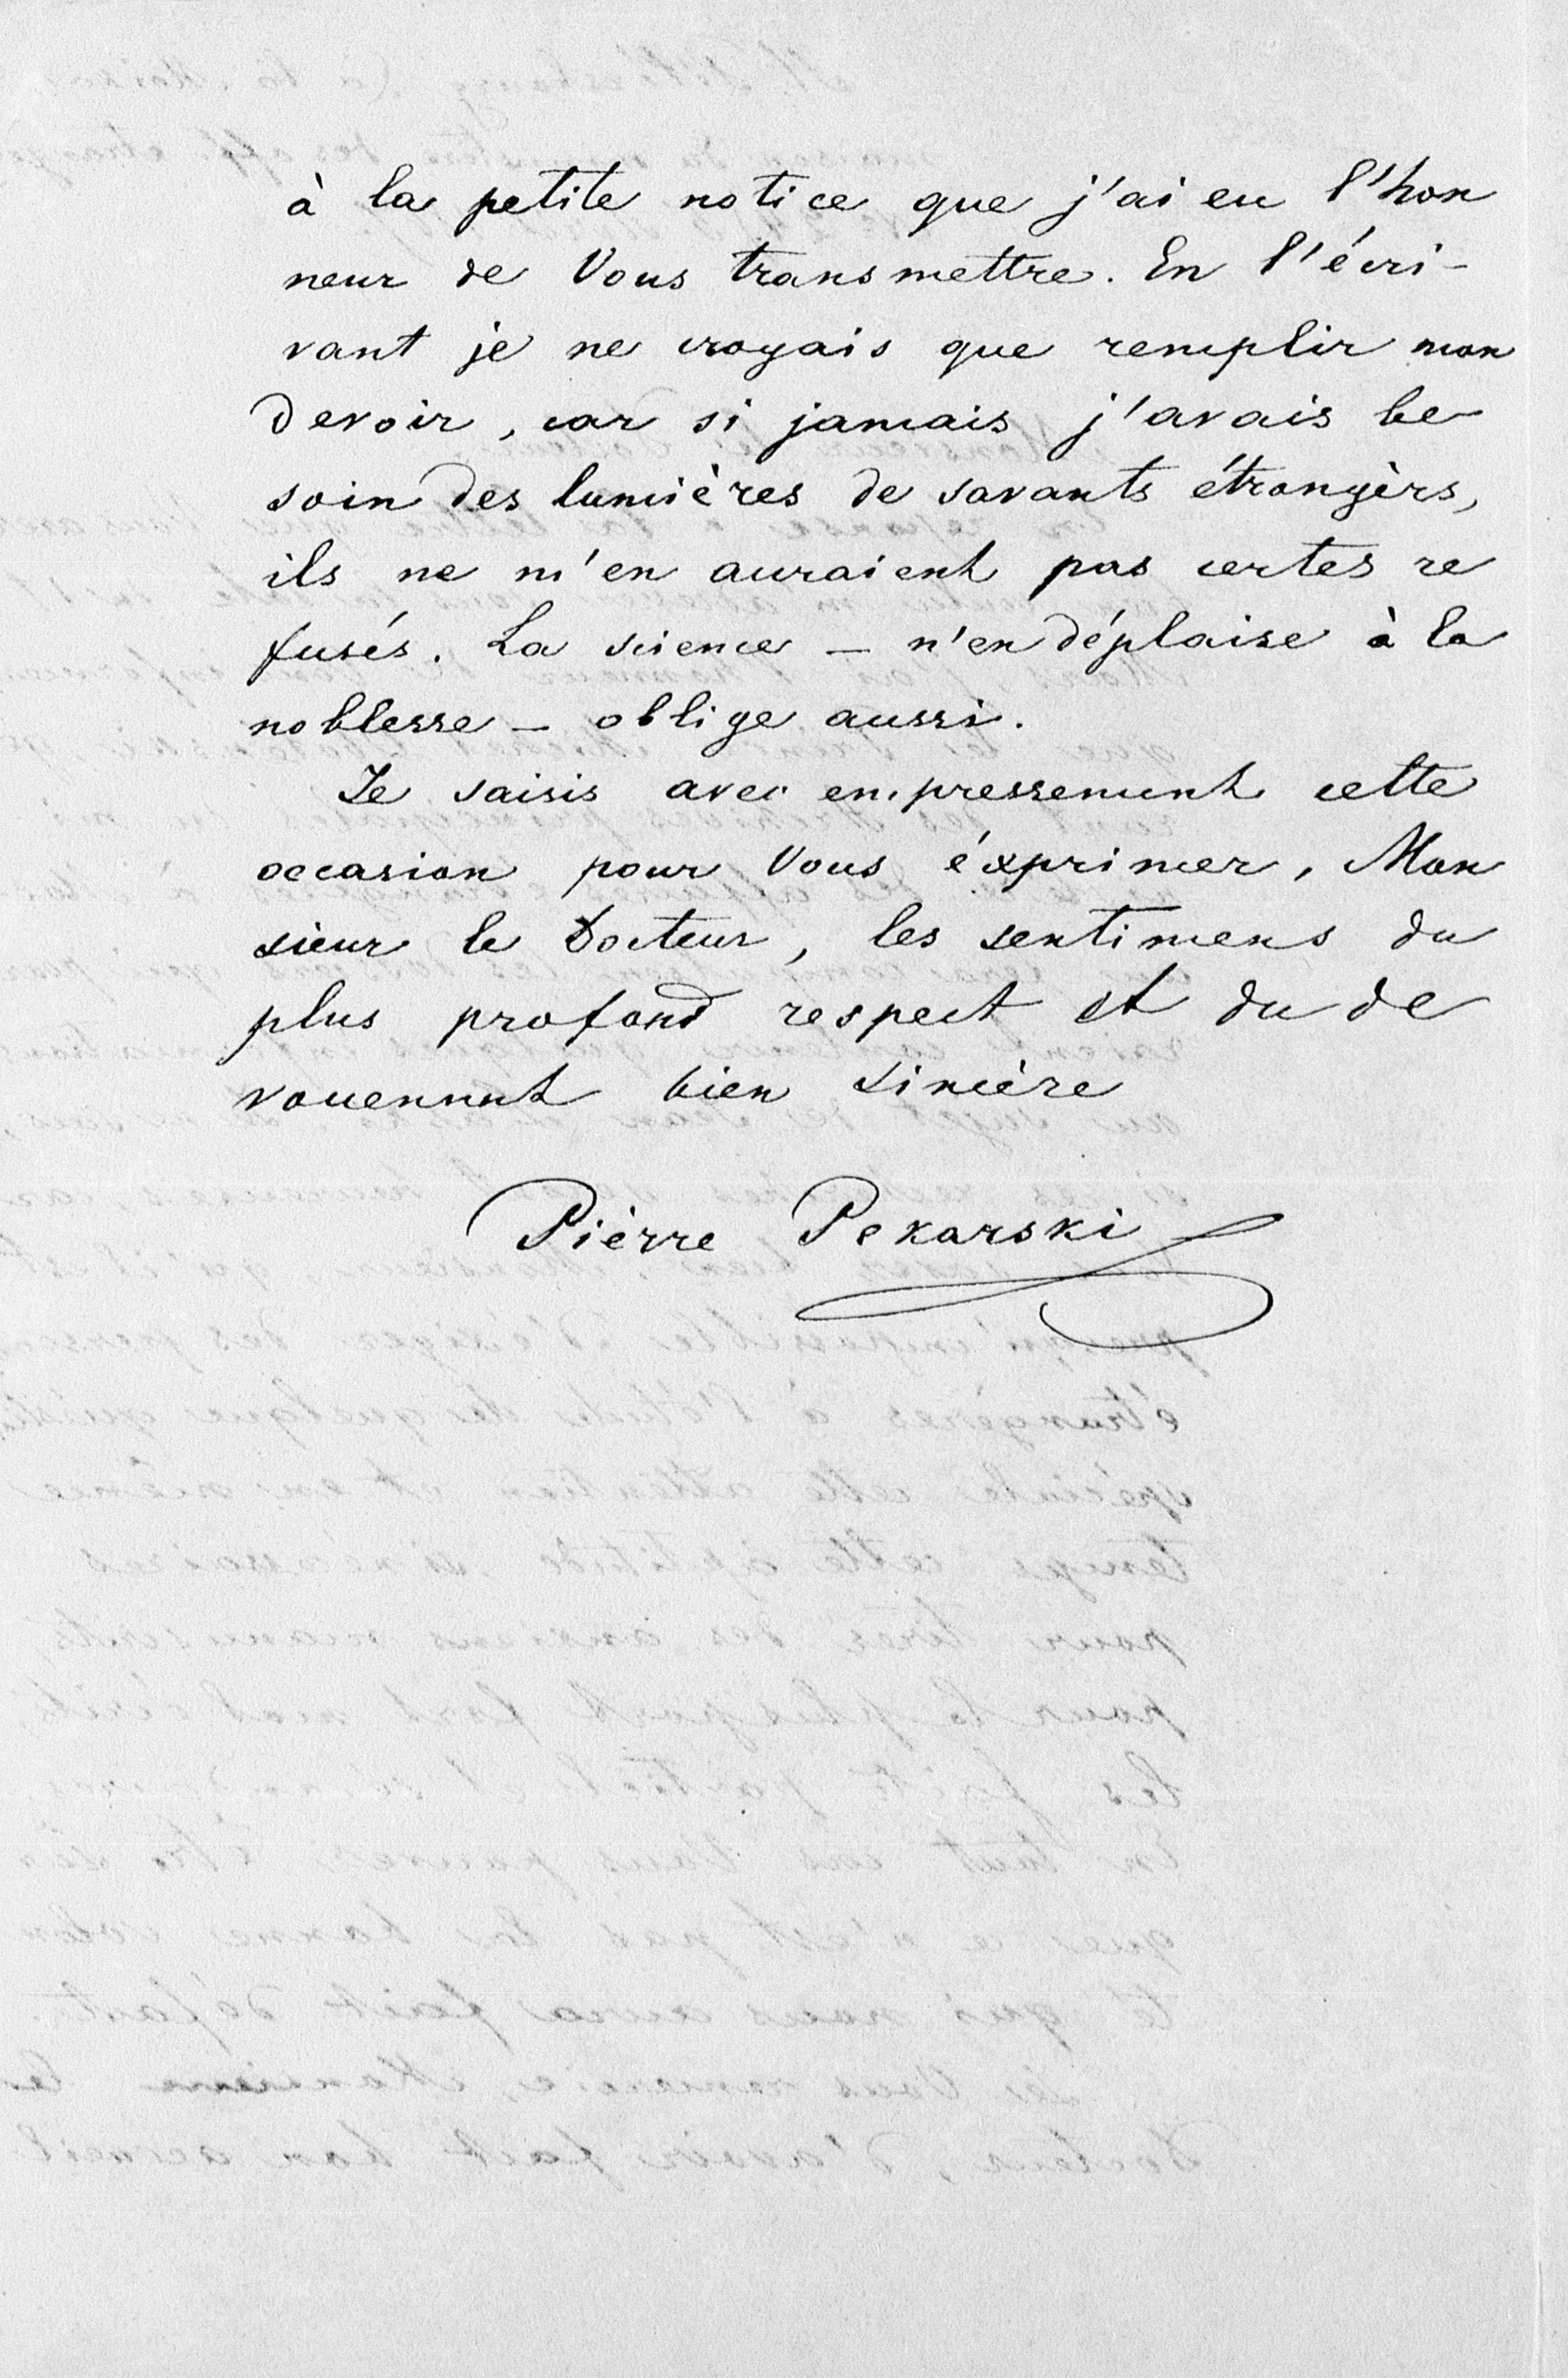 à la petite notice que j'ai eu l'hon
neur de Vous transmettre. En l'écri-
vant je ne croyais que remplir mon
devoir, car si jamais j'avais be
soin des lumières de savants étrangèrs,
ils ne m'en auraient pas certes re
fusés. La science – n'en déplaise à la
noblesse – oblige aussi.
Je saisis avec empressement cette
occasion pour Vous éxprimer, Mon
sieur le Docteur, les sentimens du
plus profond respect et du de
vouement bien sincère
Pièrre Pekarski